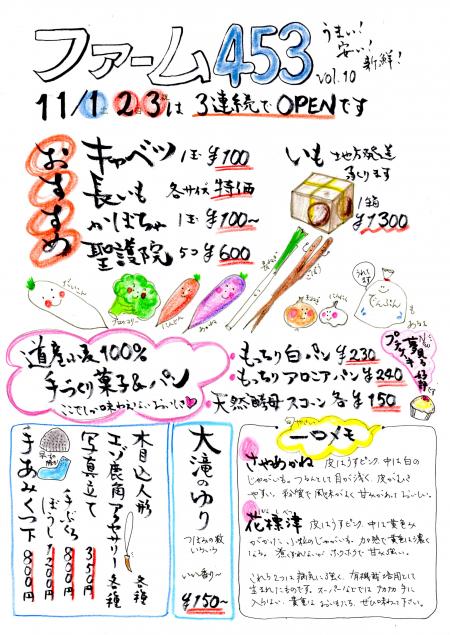 ファーム453
うまい!
安い!
新鮮!
vol.10
11/1 2 3は 3連続でOPENです
おすすめ
キャベツ 1玉 ¥100
長いも 各サイズ 特価
かぼちゃ 1玉 ¥100~
聖護院 5コ ¥600
いも 地方発送
承ります
1箱
¥1300
だいこん
ブロッコリー
にんじん
長ねぎ
ごぼう
玉ねぎ
にんにく
うれしす
でんぷん
も
あるよ
道産小麦100%
手づくり菓子&パン
ここでしか味わえないおいしさ
・もっちり白パン ¥230
・もっちりアロニアパン ¥240
・天然酵母スコーン 各¥150
夢見る
プチケーキ
好評
木目込人形 各種
エゾ鹿角アクセサリー 各種
写真立て 350円
手ぶくろ 800円
ぼうし 1200円
手あみくつ下 800円
大滝のゆり
つぼみの数
いろいろ
いい香り~
¥150~
一口メモ
さやあかね 皮はうすピンク、中は白の
じゃがいも。つるんとして目が浅く、皮がむき
やすい。粉質で風味がよく甘みがあっておいしい。
花標津 皮はうすピンク、中は黄色み
がかった、小松のじゃがいも。加熱で黄色さが濃く
なる。煮くずれしないがホクホクで甘み強い。
これら2つは病気に強く、有機栽培用として
生まれたものです。スーパーなどではナカナカ手に
入らない貴重なおいもたち、ぜひ味わって下さい。